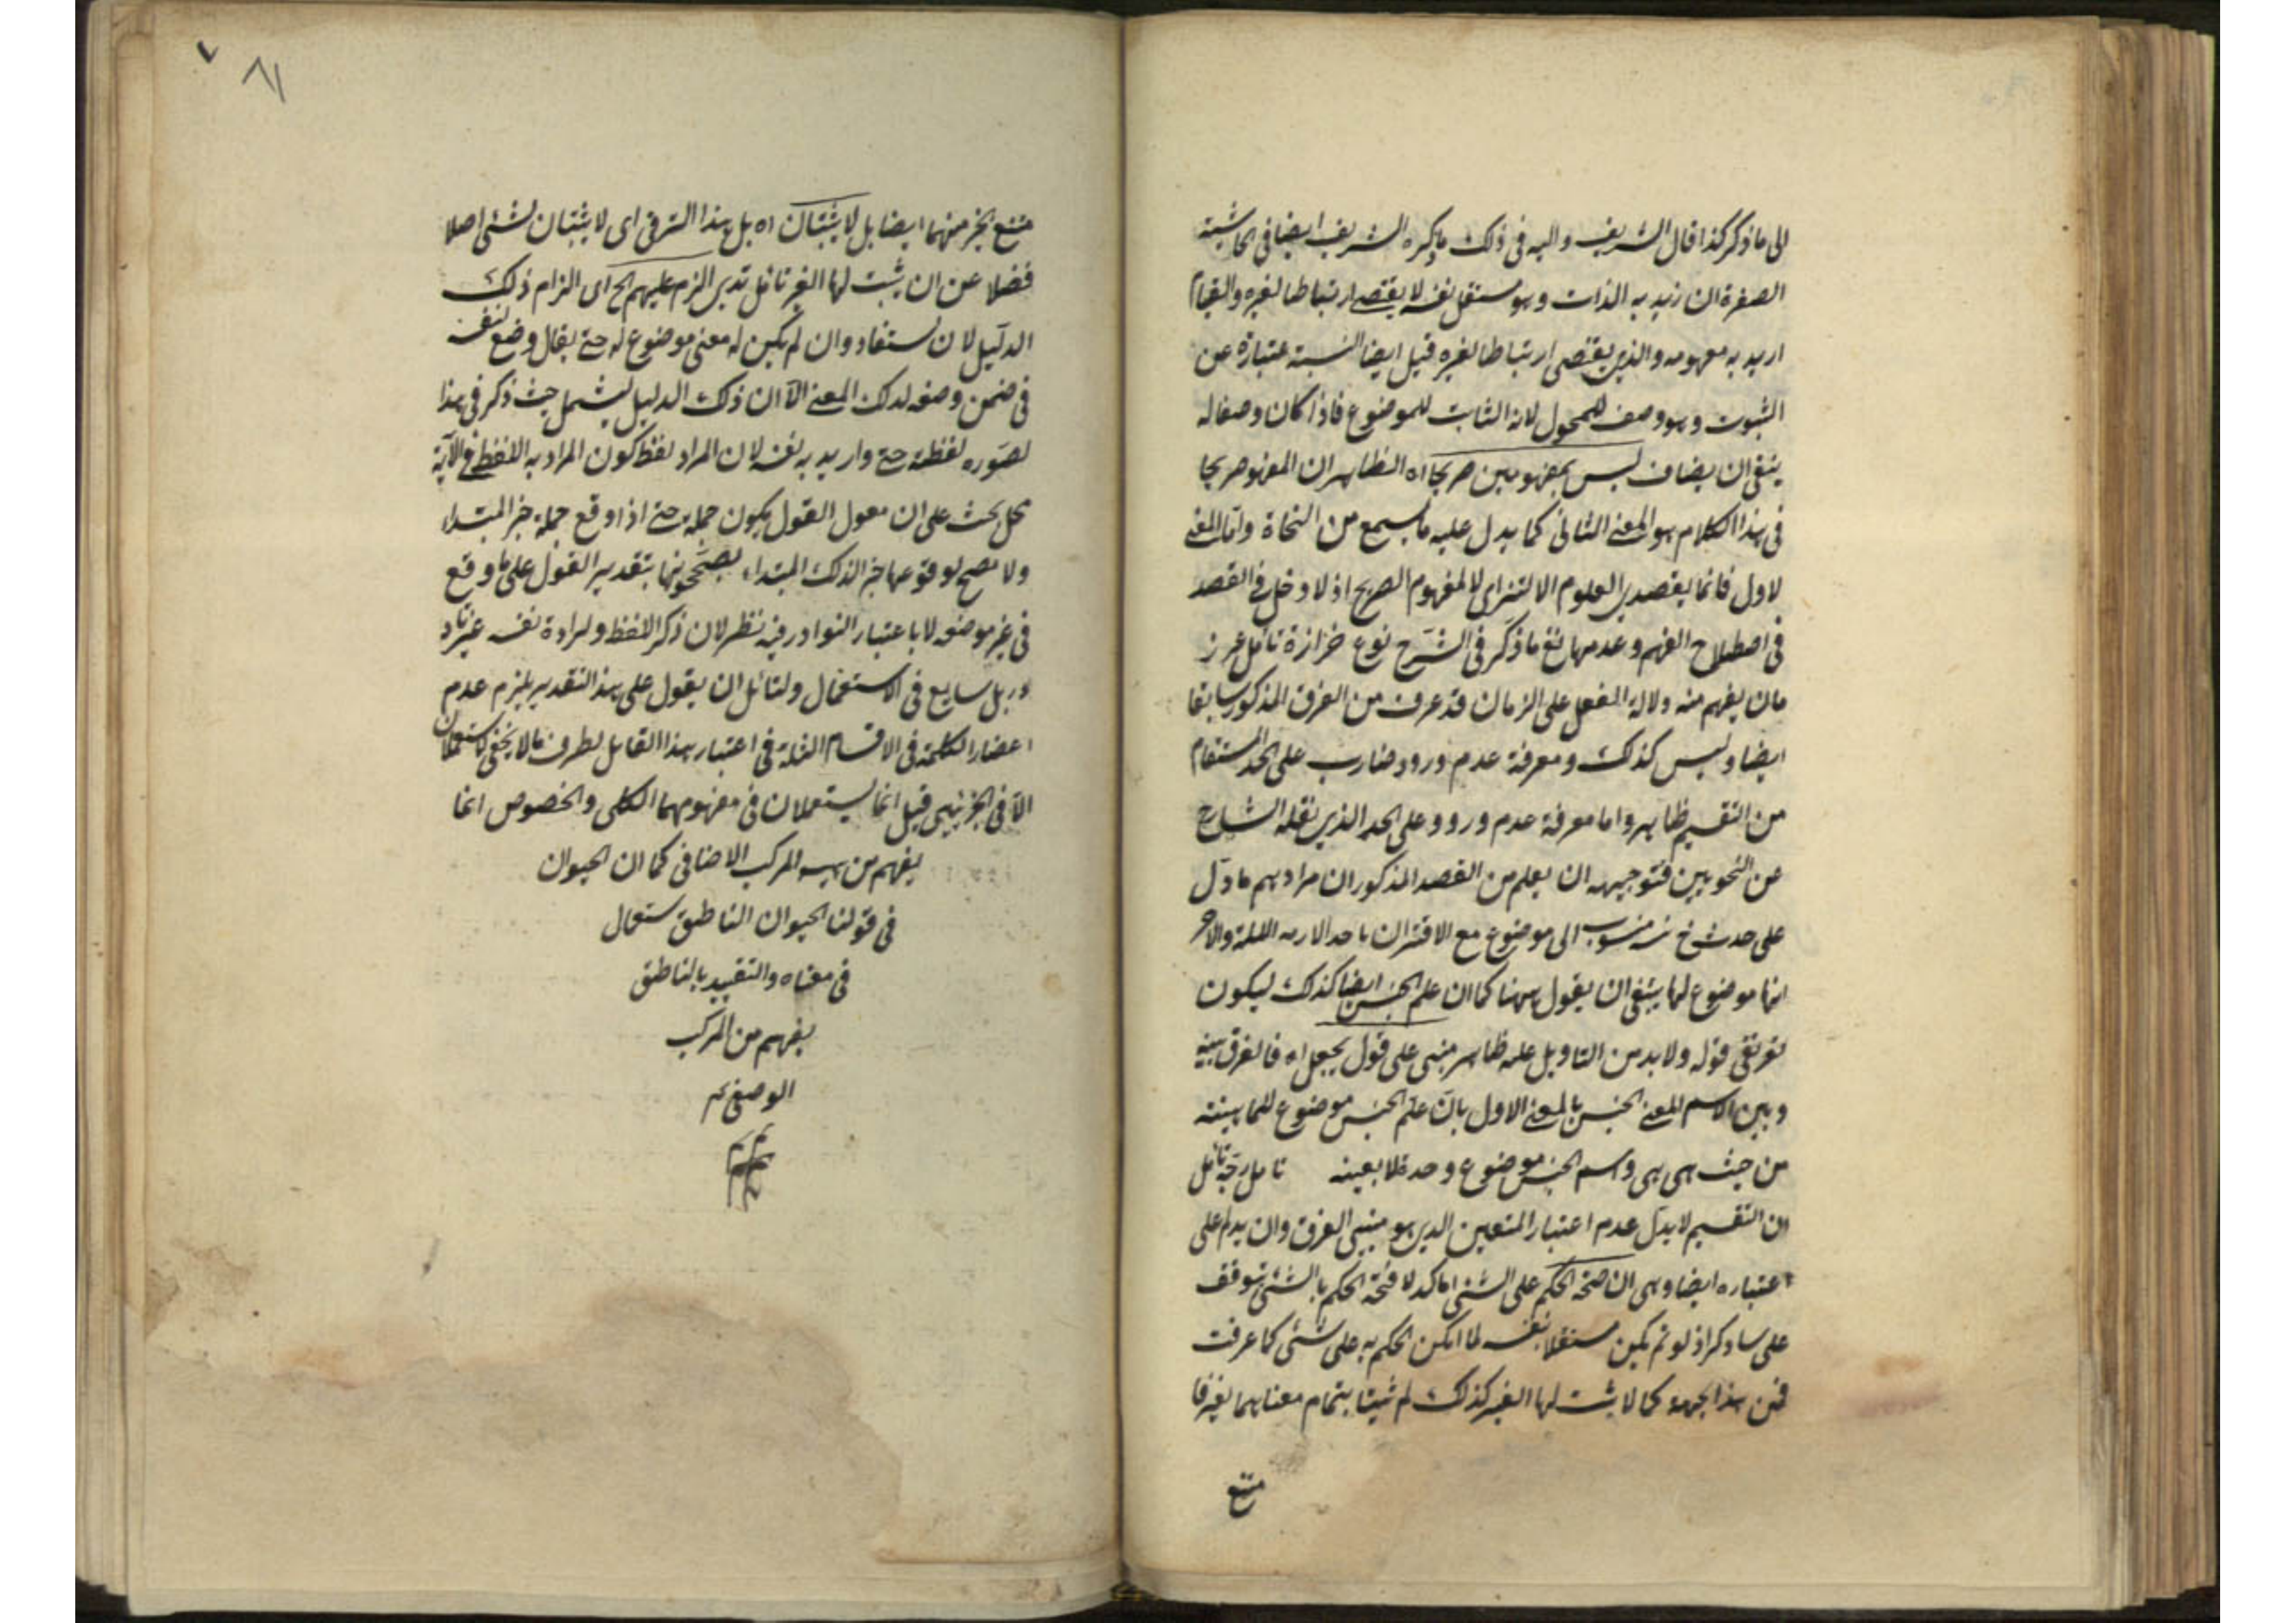 الى ما ذكر كذا قال الشريف واليه فى ذلك ما ذكره الشريف ايضا فى الحاشية
الصغرة ان زيد به الذات وهو مستقل بنفسه لا يقتضى ارتباطا لغيره والقيام
اريد به مفهومه والذى يقتضى ارتباطا لغيره قيل ايضا النسبة عبارة عن
الثبوت وهو وصف للمحمول لانه الثابت للموضوع فاذا كان وصفا له
ينبغى ان يضاف ليس بمفهومين صريحا اه الظاهر ان المفهوم صريحا
فى هذا الكلام هو المعنى الثانى كما يدل عليه ما يسمع من النحاة واما المعنى
لاول فانما يقصد فى العلوم الالتزاى لا المفهوم الصريح اذ لا دخل فى القصد
فى اصطلاح الفهم وعدمها نعم ما ذكر فى الشرح نوع حزازة تامل
مان يفهم منه دلالة الفعل على الزمان قد عرفت من الفرق المذكور سابقا
ايضا وليس كذلك ومعرفة عدم ورود ضارب على الحد المستفام
من التقسيم ظاهر واما معرفة عدم وروده على الحد الذى نقله الشارح
عن النحويين فتوجيهه ان يعلم من القصد المذكور ان مرادهم ما دل
على حدث منسوب الى موضوع مع الاقتران باحد الازمنه الثلثة والاحر
انما موضوع لما ينبغى ان يقول ههنا كما ان علم الجنس ايضا كذلك ليكون
قوله ولا بد من التاويل علمه ظاهر مبنى على قول يجعل اه فالفرق بينه
وبين الاسم المعنى الجنس بالمعنى الاول بان علم الجنس موضوع للماهيته
من حيث هى هى واسم الجنس موضوع وحدة لا بعينه تامل
ان التقسيم لا يدل عدم اعتبار المتعين الذى هو مبنى الفرق وان يدل على
اعتباره ايضا وهى ان صحة الحكم على الشئ اما كد لا فصحة الحكم بالشئ توقف
على ما ذكر اذ لو لم يكن مستقلا بنفسه لما امكن الحكم به على شئ كما عرفت
فمن هذا الجهة كما لا يثبت لها الغير كذلك لم يثبتا بتمام معناهما لغيرفا
متنع
٨١
متنع بخبر منهما ايضا بل لا يثبتان اه بل هذا الترقى اى لا يثبتان لشئ اصلا
فضلا عن ان يثبت لها الغير تامل تدبر الزم عليهم الخ اى الزام ذلك
الدليل لان مستفاد وان لم يكن له معنى موضوع له حتى يقال وضع لنفسه
فى ضمن وضعه لذلك المعنى الا ان ذلك الدليل يشمل حيث ذكر فى هذا
لصوره لفظة حتى واريد به نفسه لان المراد لفظ كون المراد به اللفظ فى الآية
محل بحث على ان معول القول يكون جملة حتى اذا وقع جملة خبر المبتداء
ولا يصح لوقوعها خبرا لذلك المبتداء يصححونها بتقدير القول على ما وقع
فى غير موضعه لا باعتبار النوادر فيه نظر لان ذكر اللفظ ولرادة نفسه غير نا
در بل سايع فى الاستعمال ولقائل ان يقول على هذا التقدير يلزم عدم
اعضار الكلمة فى الاقسام الثلثة فى اعتبار هذا القايل لطرف ما لا يخفى لا يستعملان
الا فى الجزئيى قيل انما يستعملان فى مفهومهما الكلى والخصوص انما
يفهم من هيه المركب الاضافى كما ان الحيوان
فى قولنا الحيوان الناطق ستعمال
فى معناه والتقييد بالناطق
يفهم من المركب
الوصفى تم